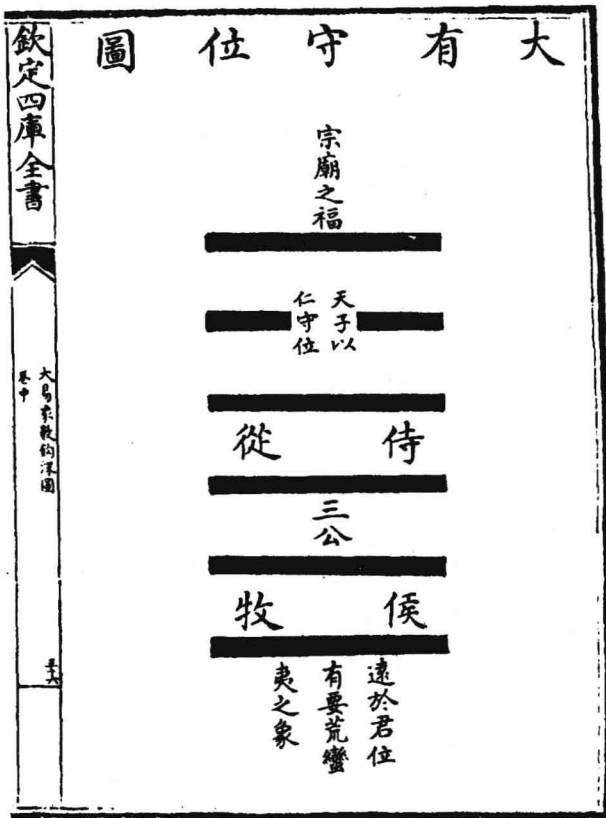 大有守位圖
宗廟之福
天子以
仁守位
侍從
三公
侯牧
遠於君位
有要荒蠻
夷之象
欽定四庫全書
大易象數鈎深圖
卷中
三六